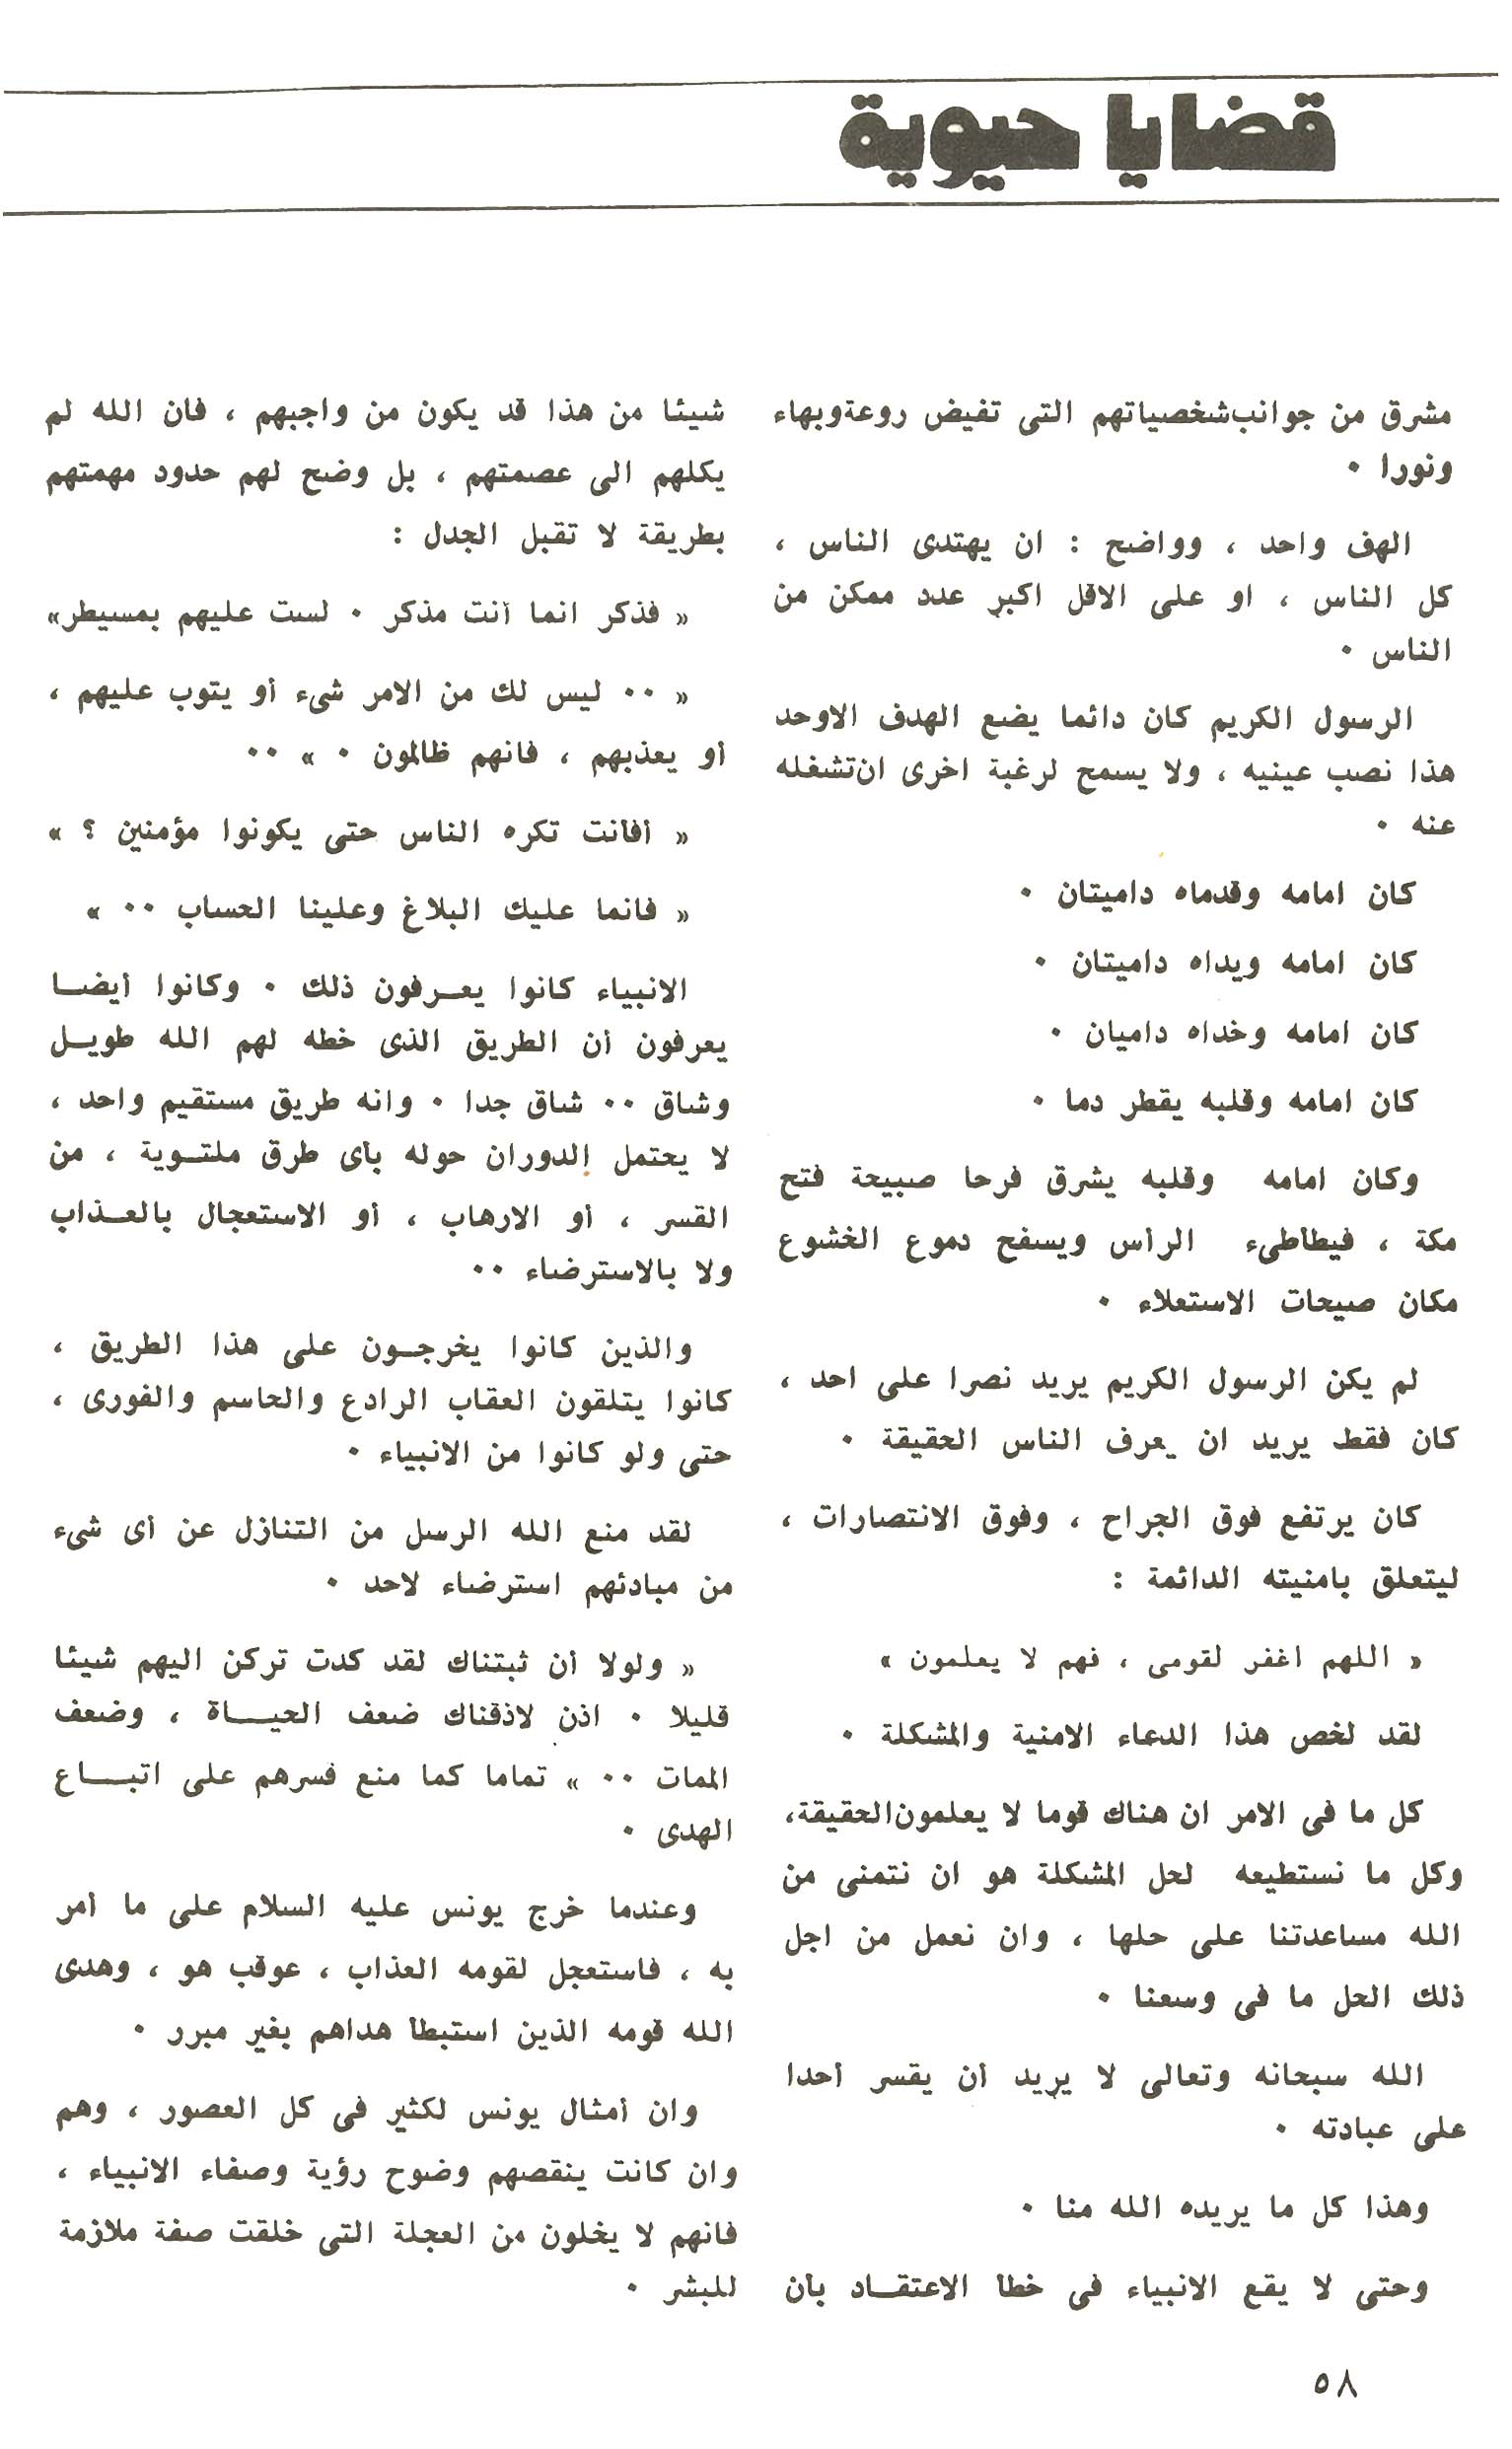 قضايا حيوية
مشرق من جوانب شخصياتهم التى تفيض روعة وبهاء
ونورا ٠
الهف واحد ، وواضح : ان يهتدى الناس ،
كل الناس ، او على الاقل اكبر عدد ممكن من
الناس ٠
الرسول الكريم كان دائما يضع الهدف الاوحد
هذا نصب عينيه ، ولا يسمح لرغبة اخرى ان تشغله
عنه ٠
كان امامه وقدماه داميتان ٠
كان امامه ويداه داميتان ٠
كان امامه وخداه داميان ٠
كان امامه وقلبه يقطر دما ٠
وكان امامه وقلبه يشرق فرحا صبيحة فتح
مكة ، فيطأطىء الرأس ويسفح دموع الخشوع
مكان صيحات الاستعلاء ٠
لم يكن الرسول الكريم يريد نصرا على احد ،
كان فقط يريد ان يعرف الناس الحقيقة ٠
كان يرتفع فوق الجراح ، وفوق الانتصارات ،
ليتعلق بامنيته الدائمة :
« اللهم اغفر لقومى ، فهم لا يعلمون »
لقد لخص هذا الدعاء الامنية والمشكلة ٠
كل ما فى الامر ان هناك قوما لا يعلمون الحقيقة،
وكل ما نستطيعه لحل المشكلة هو ان نتمنى من
الله مساعدتنا على حلها ، وان نعمل من اجل
ذلك الحل ما فى وسعنا ٠
الله سبحانه وتعالى لا يريد أن يقسر أحدا
على عبادته ٠
وهذا كل ما يريده الله منا ٠
وحتى لا يقع الانبياء فى خطأ الاعتقــاد بأن
شيئا من هذا قد يكون من واجبهم ، فان الله لم
يكلهم الى عصمتهم ، بل وضح لهم حدود مهمتهم
بطريقة لا تقبل الجدل :
« فذكر انما أنت مذكر ٠ لست عليهم بمسيطر»
« ٠٠ ليس لك من الامر شىء أو يتوب عليهم ،
أو يعذبهم ، فانهم ظالمون ٠ » ٠٠
« أفأنت تكره الناس حتى يكونوا مؤمنين ؟ »
« فانما عليك البلاغ وعلينا الحساب ٠٠ »
الانبياء كانوا يعــرفون ذلك ٠ وكانوا أيضــا
يعرفون أن الطريق الذى خطه لهم الله طويــل
وشاق ٠٠ شاق جدا ٠ وانه طريق مستقيم واحد ،
لا يحتمل الدوران حوله بأى طرق ملتــوية ، من
القسر ، أو الارهاب ، أو الاستعجال بالعــذاب
ولا بالاسترضاء ٠٠
والذين كانوا يخرجــون على هذا الطريق ،
كانوا يتلقون العقاب الرادع والحاسم والفورى ،
حتى ولو كانوا من الانبياء ٠
لقد منع الله الرسل من التنازل عن أى شىء
من مبادئهم استرضاء لاحد ٠
« ولولا أن ثبتناك لقد كدت تركن اليهم شيئا
قليلا ٠ اذن لاذقناك ضعف الحيـــاة ، وضعف
الممات ٠٠ » تماما كما منع قسرهم على اتبـــاع
الهدى ٠
وعندما خرج يونس عليه السلام على ما أمر
به ، فاستعجل لقومه العذاب ، عوقب هو ، وهدى
الله قومه الذين استبطأ هداهم بغير مبرر ٠
وان أمثال يونس لكثير فى كل العصور ، وهم
وان كانت ينقصهم وضوح رؤية وصفاء الانبياء ،
فانهم لا يخلون من العجلة التى خلقت صفة ملازمة
للبشر ٠
٥٨